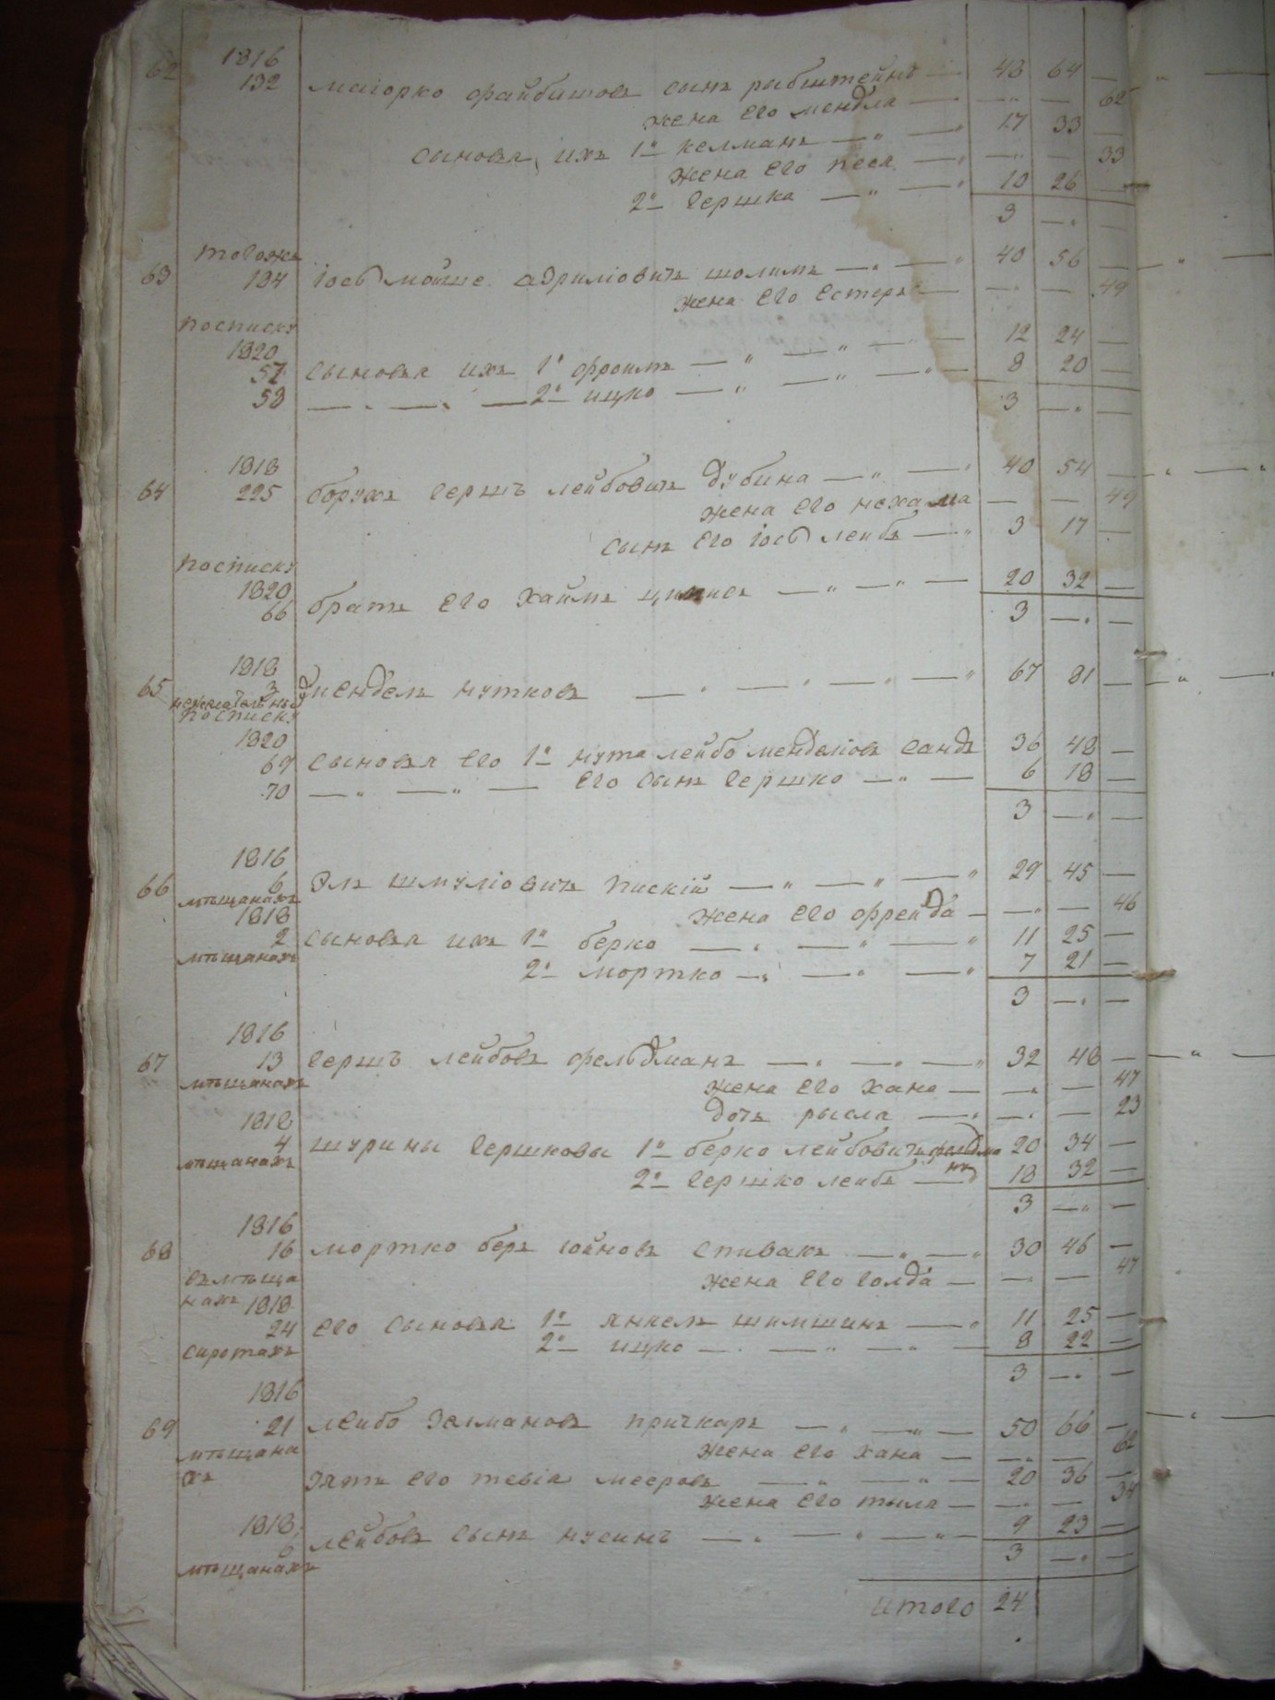 1816
62 132 Маiорко файбишовъ сынъ рабштейнъ — 48 64 —
жена его мендла — — — 62
сыновья ихъ 1й келманъ — 17 33 —
жена его песя — — — 33
2й гершка — 10 26 —
3 — —
тогожъ
63 134 Iось мойше шолимъ — 40 56 —
жена его естеръ — — — 49
посписку
1820
57 сыновья ихъ 1й фроимъ — 12 24 —
58 — — — 2й ицко — 8 20 —
3 — —
1818
64 225 борухъ гершъ лейбовичъ дубина — 40 54 —
жена его нехама — — 49
сынъ его Iось лейбъ — 3 17 —
посписку
1820
66 братъ его хаимъ — 20 32 —
3 — —
1818
65 3 мендель нутковъ — 67 81 —
посписку
1820
69 сыновья его 1й нута лейбо менделiовъ сандъ 36 48 —
70 — — — его сынъ гершко — 6 18 —
3 — —
1816
66 6 Эль шмулiовичъ пискiй — 29 45 —
мѣщанахъ
жена его фрейда — — — 46
1818
2 сыновья ихъ 1й берко — 11 25 —
мѣщанахъ
2й мортко — 7 21 —
3 — —
1816
67 13 гершъ лейбовъ фельдманъ — 32 48 —
мѣщанахъ
жена его хана — — — 47
дочь рысля — — — 23
1818
4 шурины гершковы 1й берко лейбовичъ фельдма 20 34 —
мѣщанахъ
нъ
2й гершко лейбъ — 18 32 —
3 — —
1816
68 16 мортко беръ iойновъ спивакъ — 30 46 —
жена его голда — — — 47
въ мѣща
нахъ 1818
24 его сыновья 1й янкель шимшинъ — 11 25 —
сиротахъ
2й ицко — 8 22 —
3 — —
1816
69 21 лейбо залмановъ причкаръ — 50 66 —
мѣщана
хъ
жена его хана — — — 62
зять его тевiя мееровъ — 20 36 —
жена его тыля — — — 34
1818
6 лейбовъ сынъ нусинъ — 9 23 —
мѣщанахъ
3 — —
итого 24